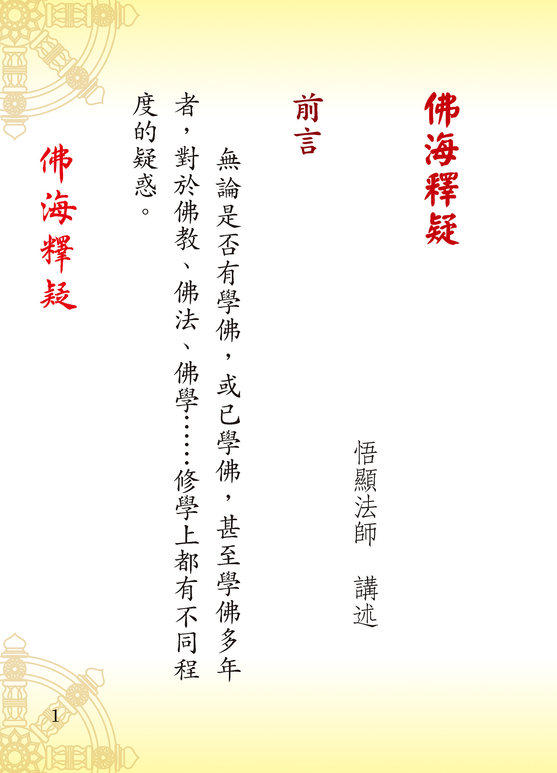 佛海釋疑
悟顯法師　講述
前言
無論是否有學佛，或已學佛，甚至學佛多年
者，對於佛教、佛法、佛學……修學上都有不同程
度的疑惑。
佛海釋疑
1